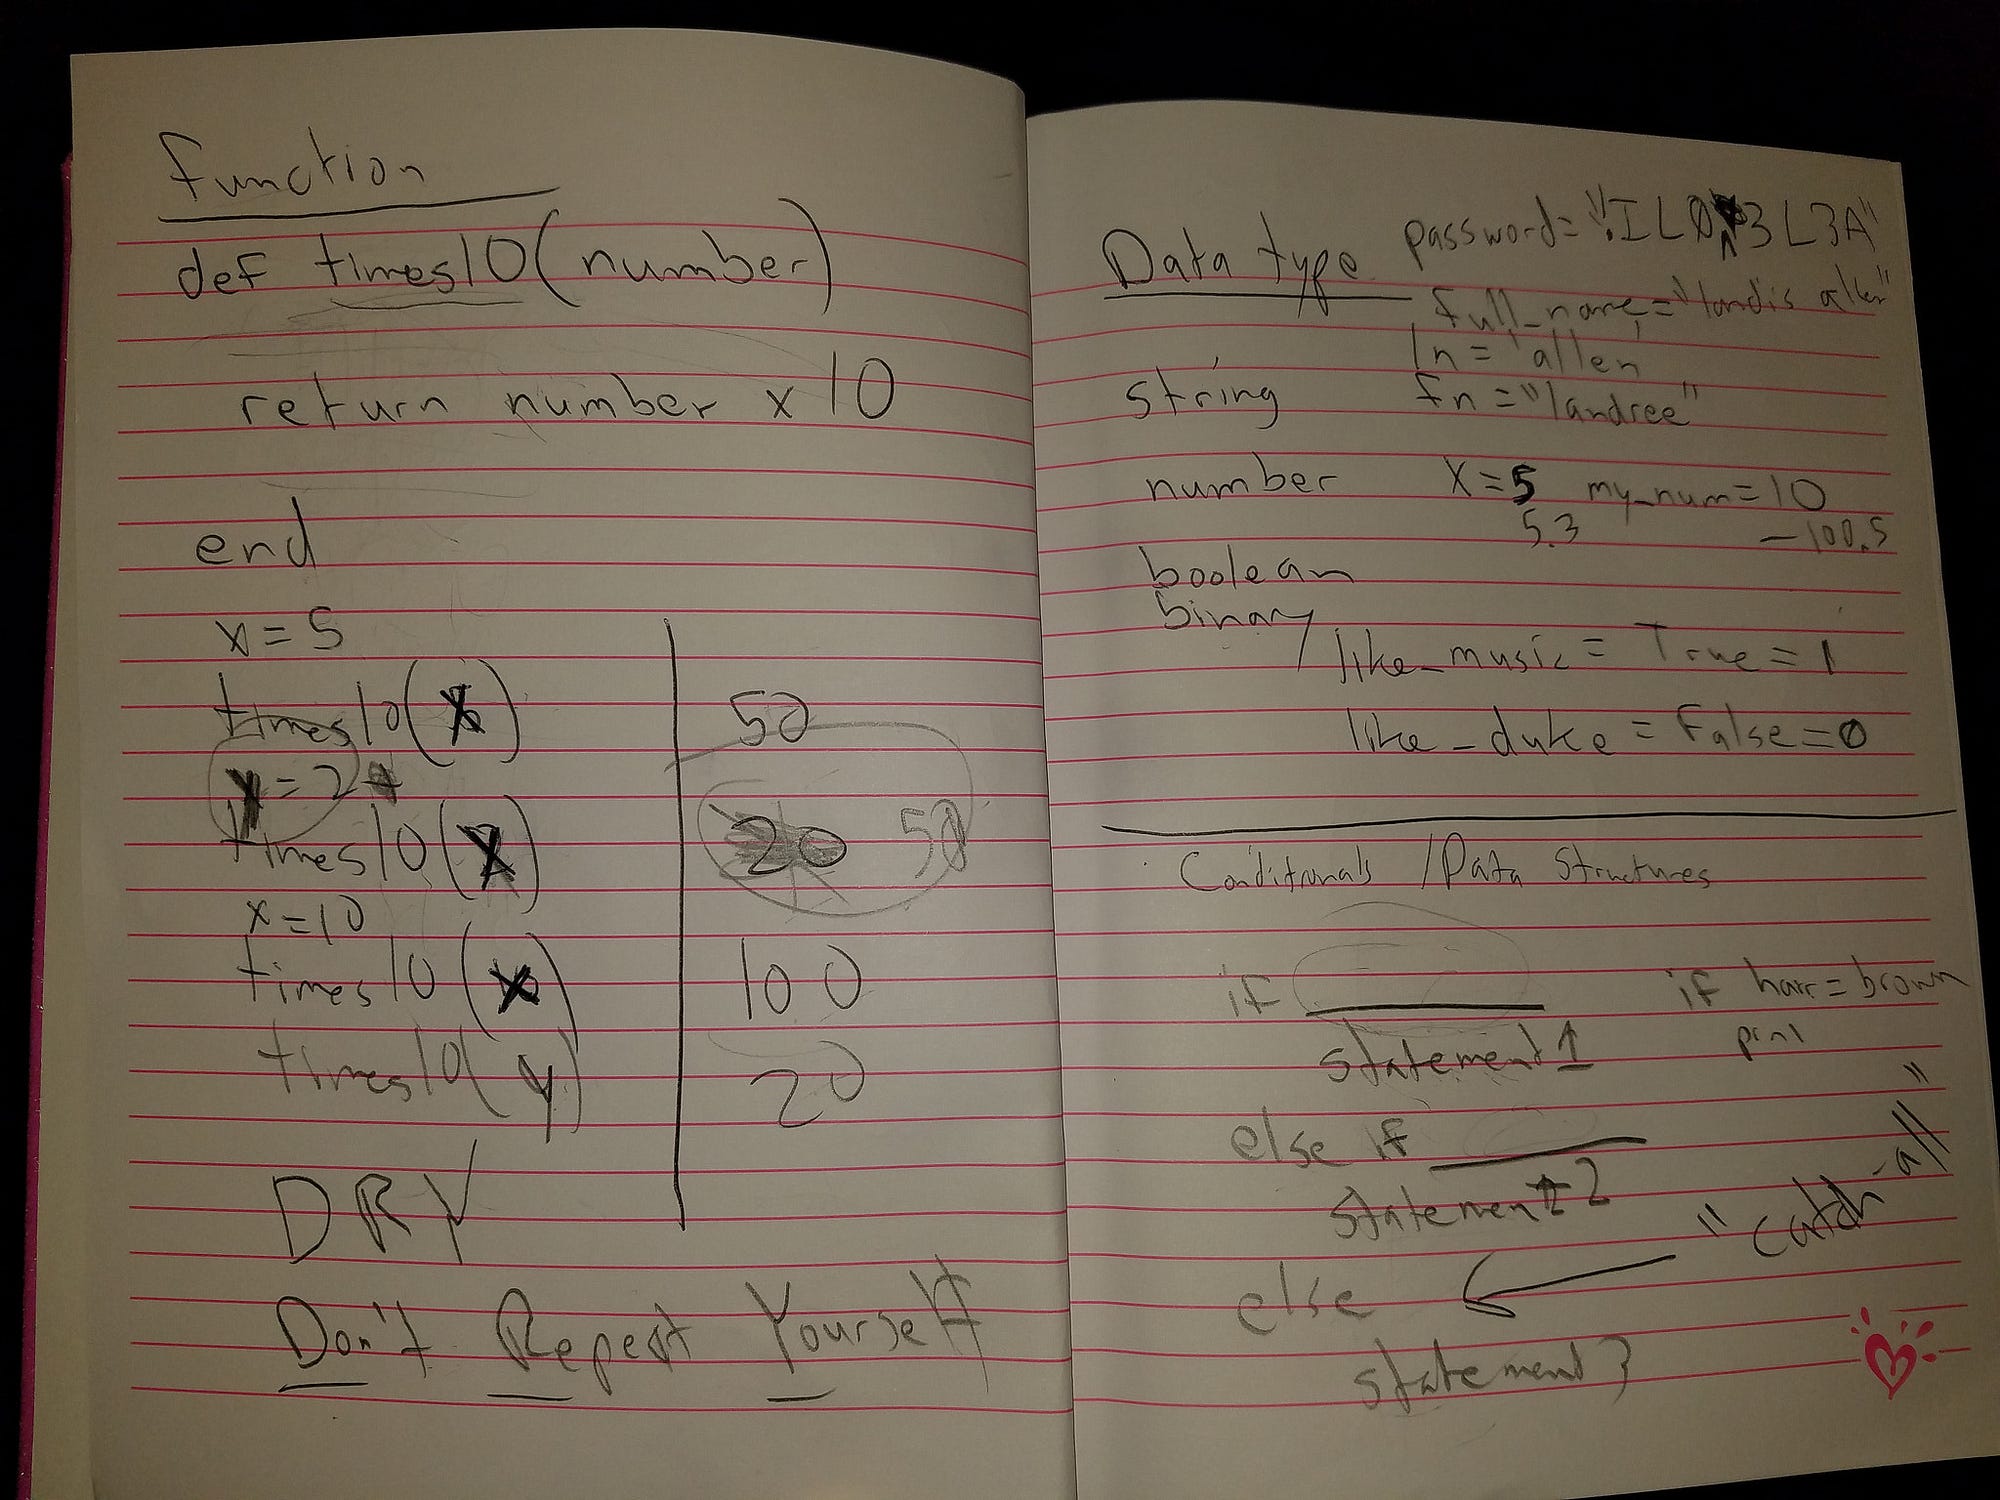 function
def times10(number)
return number x 10
end
x = 5
times10(x) 50
y = 2
times10(x) 50
x = 10
times10(x) 100
times10(y) 20
DRY
Don't Repeat Yourself
Data type password=
full_name="landis allen"
ln = 'allen'
string fn = "landree"
number x = 5 my_num=10
5.3 -100.5
boolean
binary
like_music = True = 1
like_duke = False = 0
Conditionals / Data Structures
if if hair = brown
statement 1
else if
statement 2
"catch-all"
else
statement 3